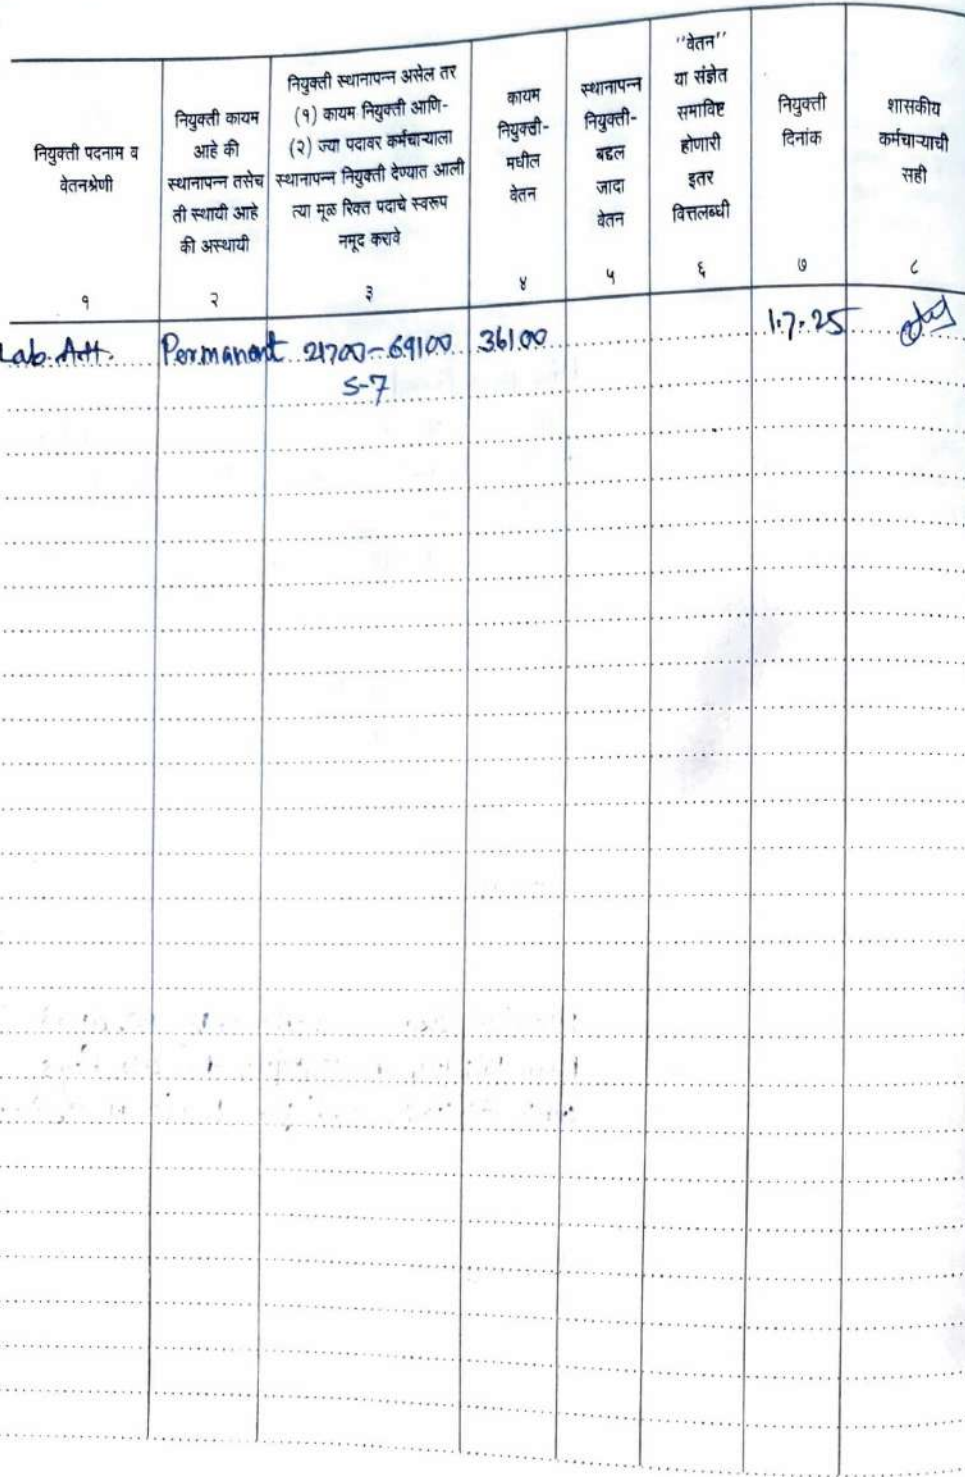 नियुक्ती पदनाम व
वेतनश्रेणी
१
नियुक्ती कायम
आहे की
स्थानापन्न तसेच
ती स्थायी आहे
की अस्थायी
२
नियुक्ती स्थानापन्न असेल तर
(१) कायम नियुक्ती आणि-
(२) ज्या पदावर कर्मचाऱ्याला
स्थानापन्न नियुक्ती देण्यात आली
त्या मूळ रिक्त पदाचे स्वरूप
नमूद करावे
३
कायम
नियुक्ती-
मधील
वेतन
४
स्थानापन्न
नियुक्ती-
बद्दल
जादा
वेतन
५
''वेतन''
या संज्ञेत
समाविष्ट
होणारी
इतर
वित्तलब्धी
६
नियुक्ती
दिनांक
७
शासकीय
कर्मचाऱ्याची
सही
८
Lab. Att. Permanant 21700-69100 36100 1.7.25
S-7